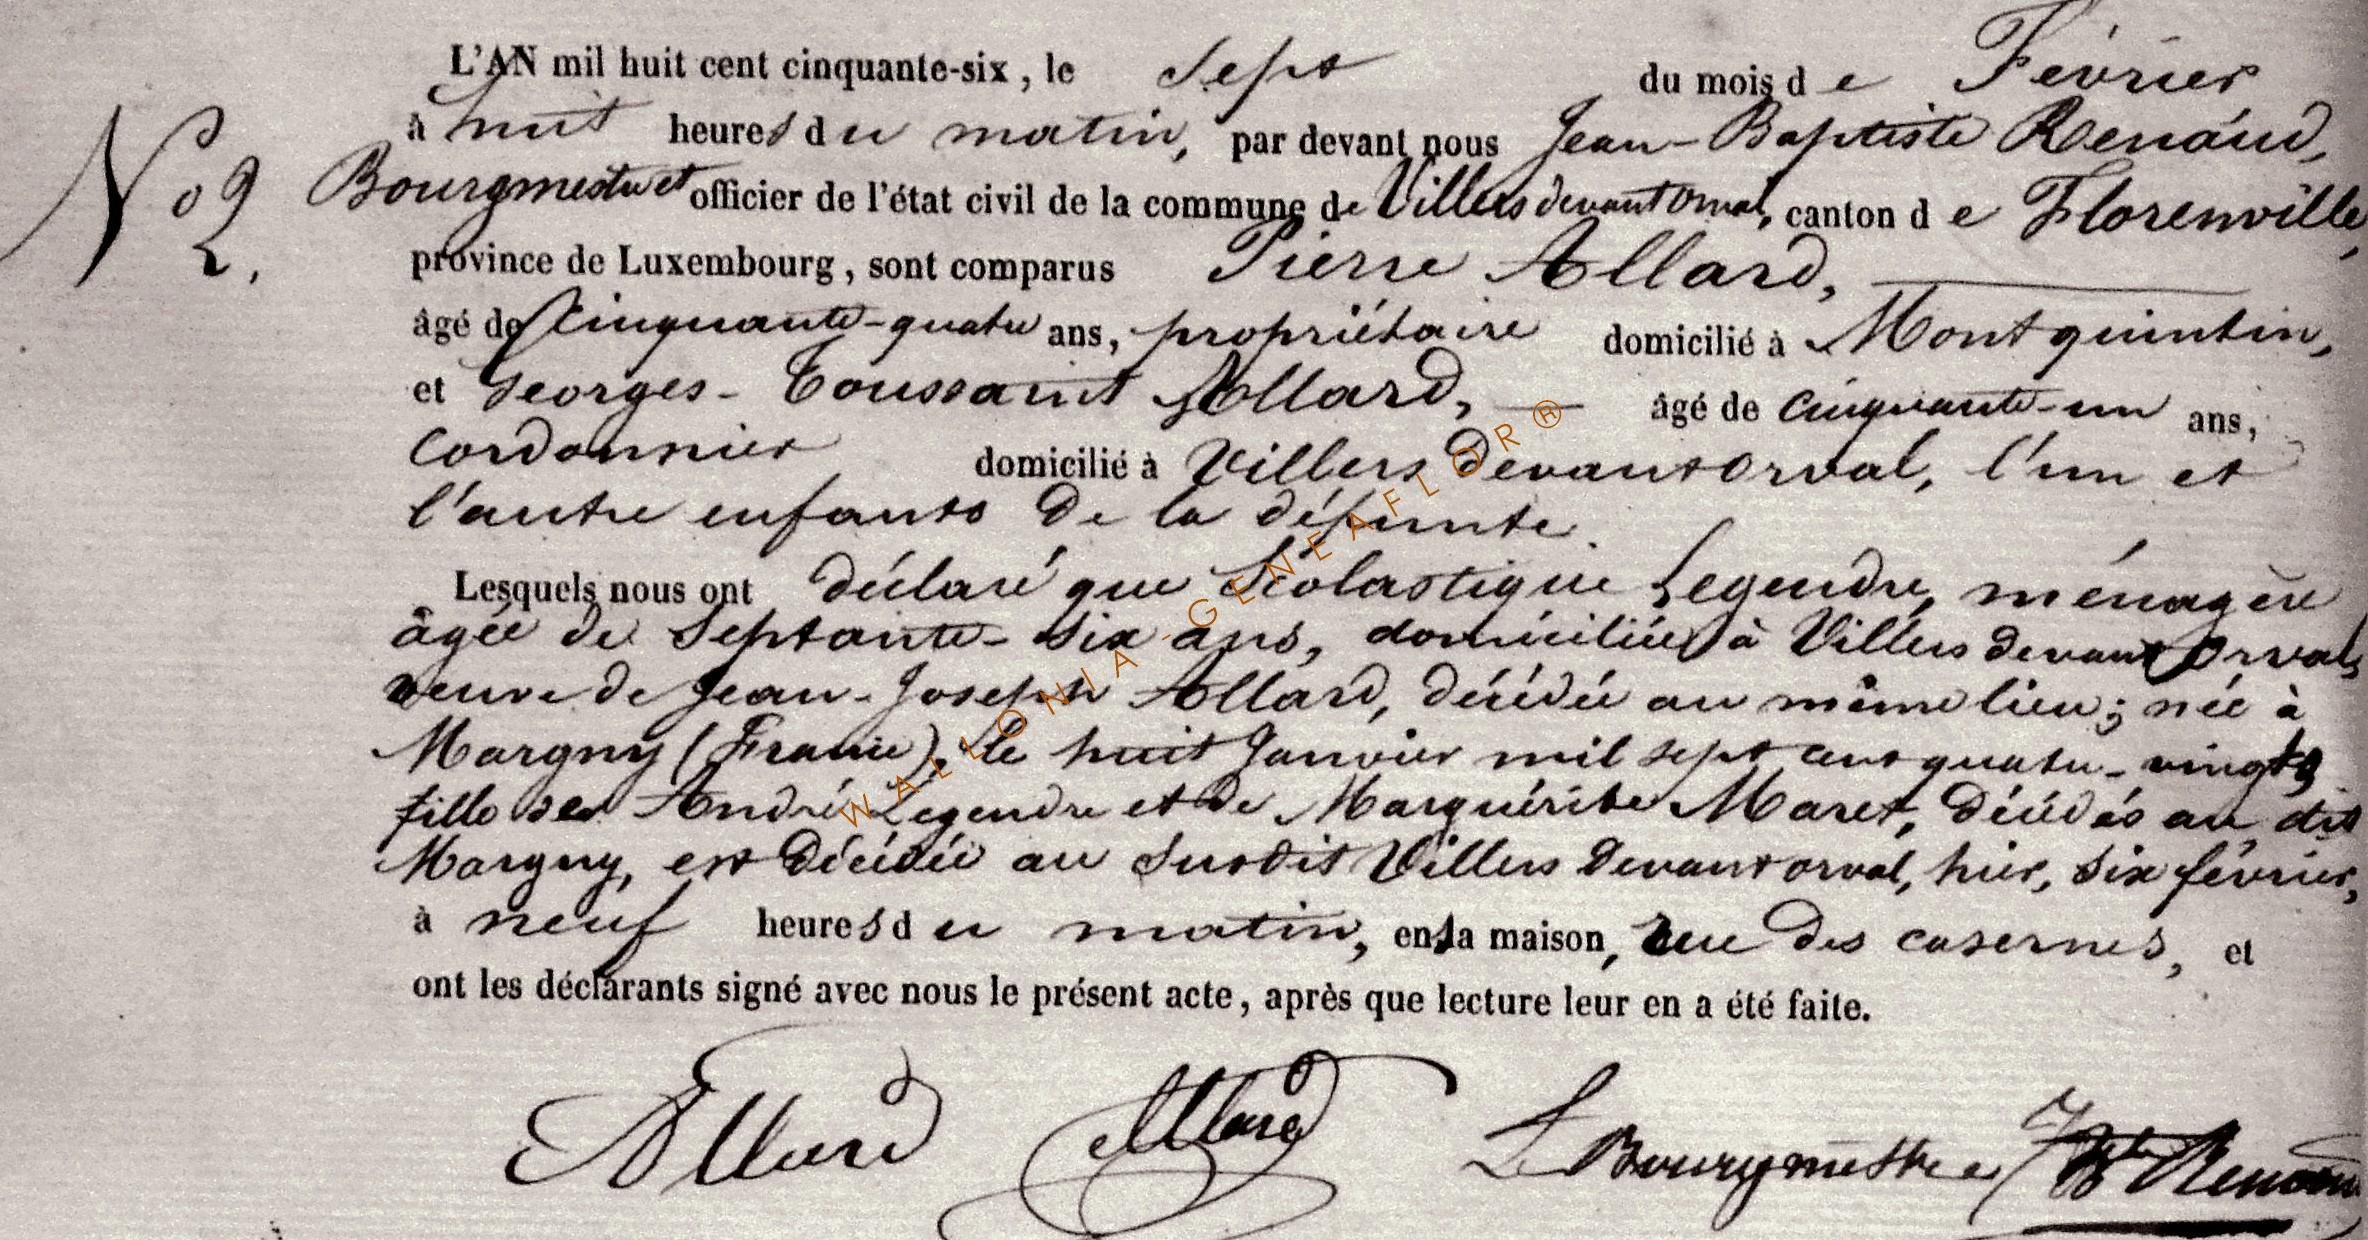 L'AN mil huit cent cinquante-six, le Sept du mois de Février
à huit heures du matin, par devant nous Jean-Baptiste Renaud,
No 2. Bourgmestre et officier de l'état civil de la commune de Villers devant Orval, canton de Florenville,
province de Luxembourg, sont comparus Pierre Allard,
âgé de Cinquante-quatre ans, propriétaire domicilié à Montquintin,
et Georges-Toussaint Allard, âgé de cinquante-un ans,
Cordonnier domicilié à Villers devant Orval, l'un et
l'autre enfants de la défunte.
Lesquels nous ont déclaré que Scolastique Legendre, ménagère
âgée de Septante-six ans, domiciliée à Villers devant Orval,
veuve de Jean-Joseph Allard, décédé au même lieu; née à
Margny (France), le huit Janvier mil sept cent quatre-vingts
fille de André Legendre et de Marguérite Maret, décédés au dit
Margny, est décédée au susdit Villers devant orval, hier, six février,
à neuf heures du matin, en sa maison, rue des casernes, et
ont les déclarants signé avec nous le présent acte, après que lecture leur en a été faite.
Allard Allard Le Bourgmestre Renaud
WALLONIA-GENEAFLOR®